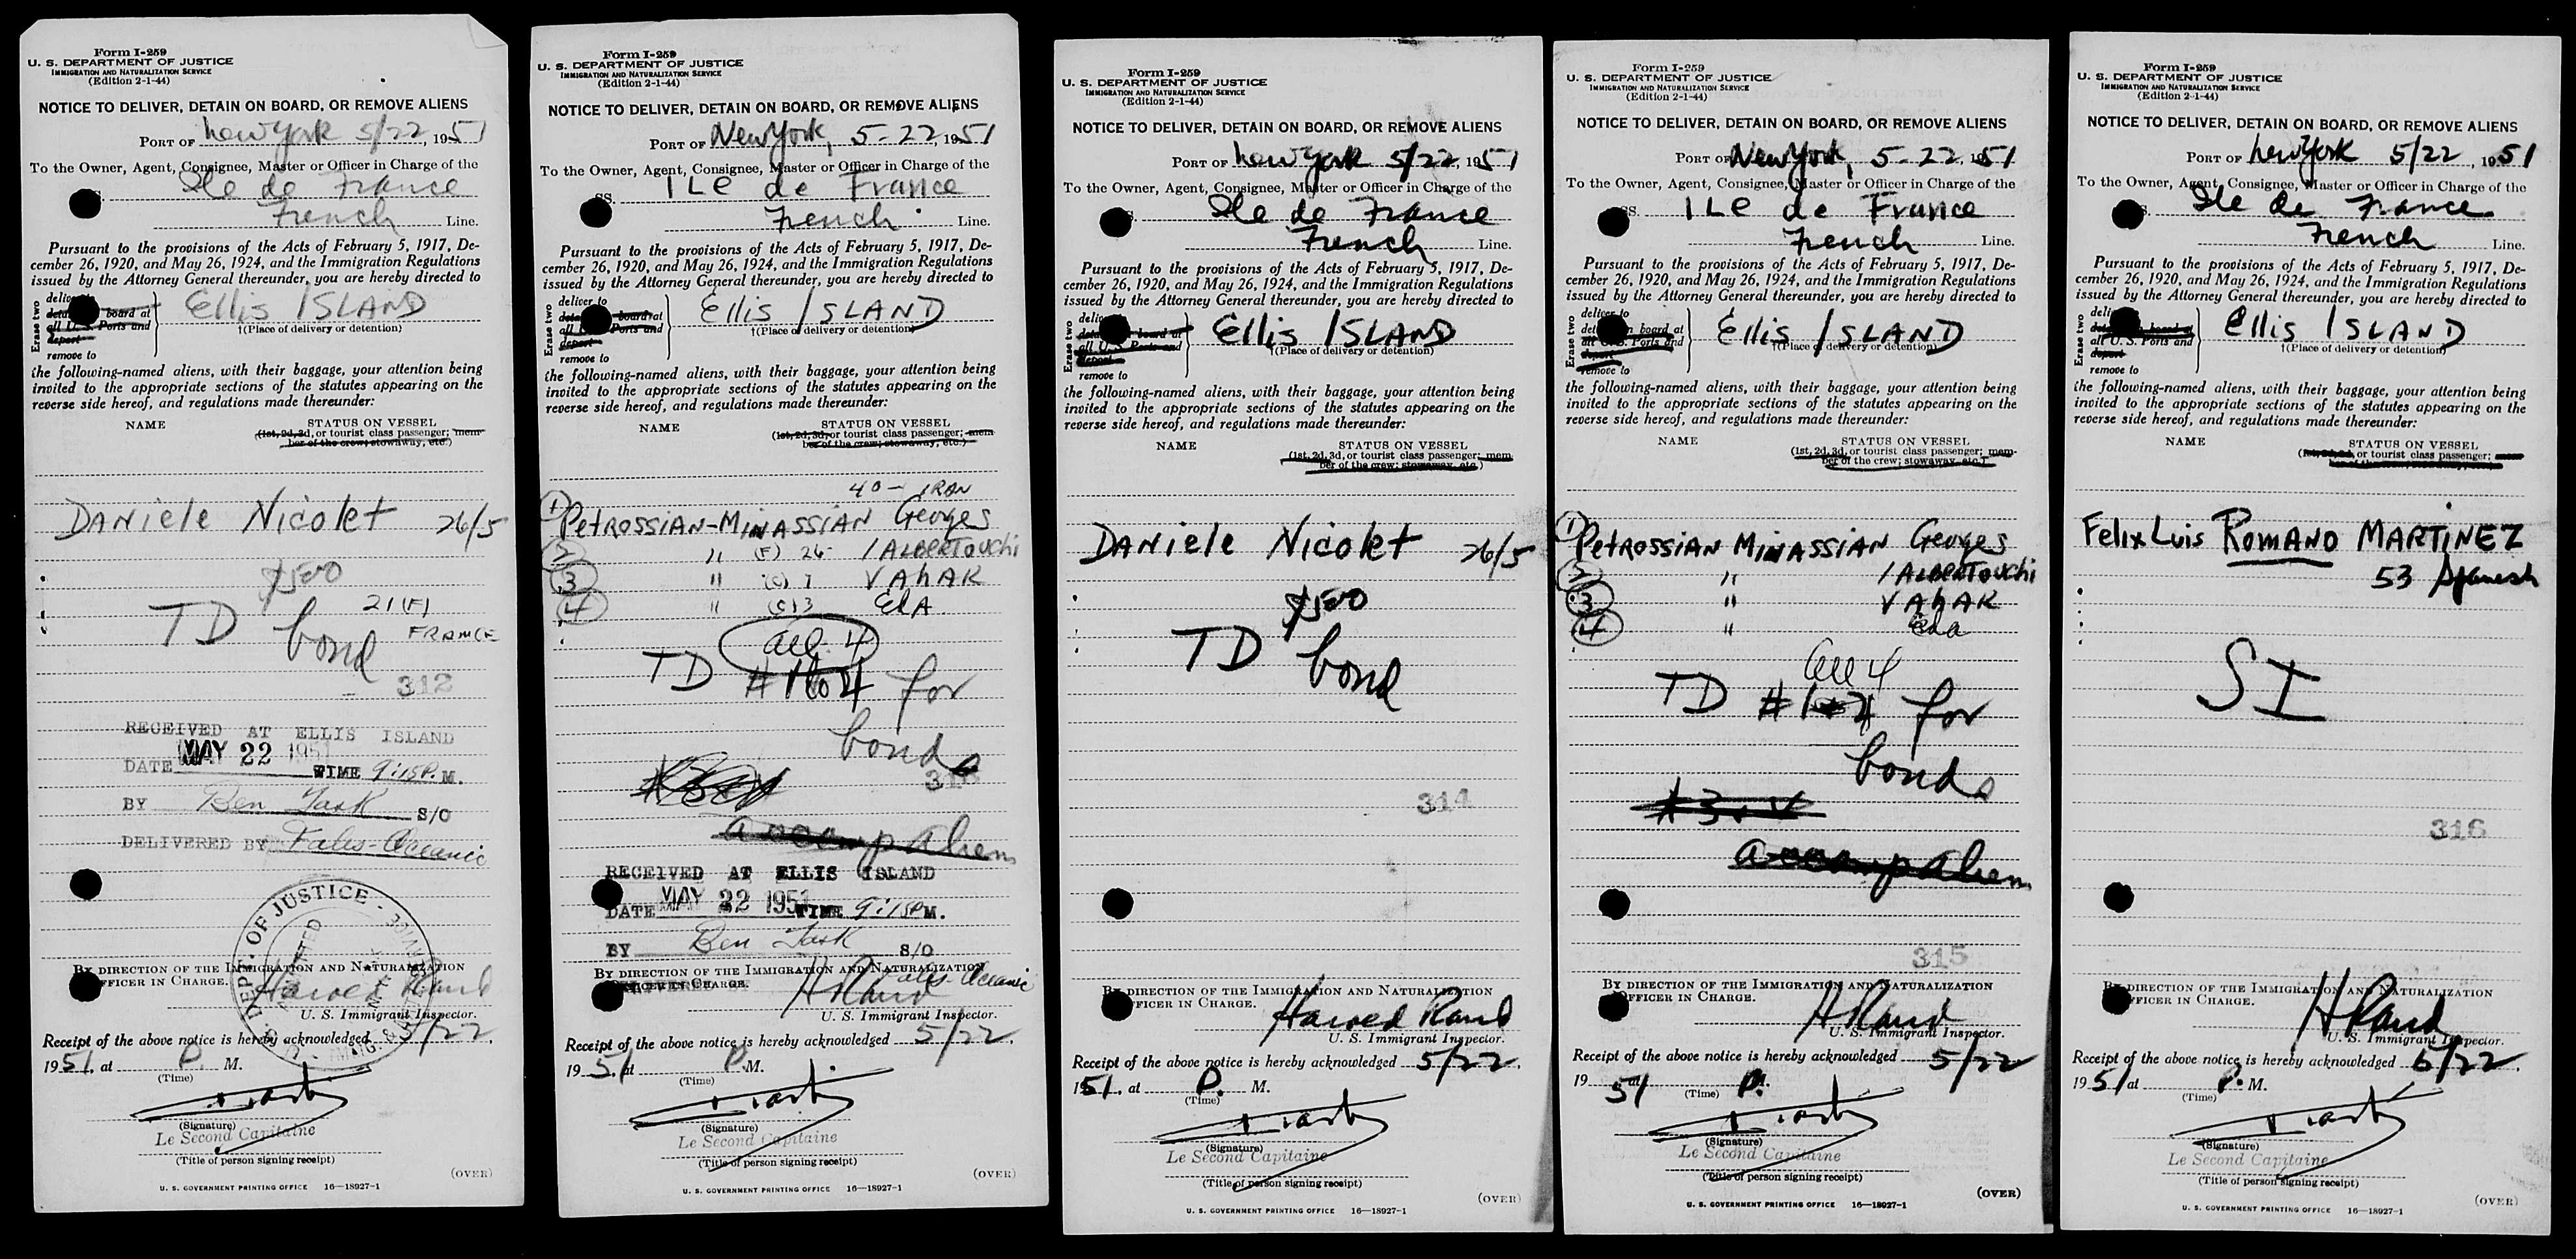 Form I-259
U. S. DEPARTMENT OF JUSTICE
IMMIGRATION AND NATURALIZATION SERVICE
(Edition 2-1-44)
NOTICE TO DELIVER, DETAIN ON BOARD, OR REMOVE ALIENS
PORT OF New York 5/22, 1951
To the Owner, Agent, Consignee, Master or Officer in Charge of the
Ile de France
French Line.
Pursuant to the provisions of the Acts of February 5, 1917, De-
cember 26, 1920, and May 26, 1924, and the Immigration Regulations
issued by the Attorney General thereunder, you are hereby directed to
Erase two
board at Ellis ISLAND
all U. S. Ports and †(Place of delivery or detention)
remove to
the following-named aliens, with their baggage, your attention being
invited to the appropriate sections of the statutes appearing on the
reverse side hereof, and regulations made thereunder:
NAME STATUS ON VESSEL
(1st, 2d, 3d, or tourist class passenger; mem-
ber of the crew; stowaway, etc.)
DANiele Nicolet 26/5
$500
21 (F)
TD bond FRANCE
312
RECEIVED AT ELLIS ISLAND
DATE MAY 22 1951 TIME 9:15 P.M.
BY Ben Task S/O
DELIVERED BY Fales-Oceanic
DEPT. OF JUSTICE
BY DIRECTION OF THE IMMIGRATION AND NATURALIZATION
OFFICER IN CHARGE. Harold Rand
U. S. Immigrant Inspector.
Receipt of the above notice is hereby acknowledged 5/22,
1951, at P. M.
(Time)
(Signature)
Le Second Capitaine
(Title of person signing receipt)
(OVER)
U. S. GOVERNMENT PRINTING OFFICE 16—18927-1
Form I-259
U. S. DEPARTMENT OF JUSTICE
IMMIGRATION AND NATURALIZATION SERVICE
(Edition 2-1-44)
NOTICE TO DELIVER, DETAIN ON BOARD, OR REMOVE ALIENS
PORT OF New York, 5-22, 1951
To the Owner, Agent, Consignee, Master or Officer in Charge of the
SS. ILe de France
French Line.
Pursuant to the provisions of the Acts of February 5, 1917, De-
cember 26, 1920, and May 26, 1924, and the Immigration Regulations
issued by the Attorney General thereunder, you are hereby directed to
Erase two
deliver to
board at Ellis ISLAND
Ports and †(Place of delivery or detention)
deport
remove to
the following-named aliens, with their baggage, your attention being
invited to the appropriate sections of the statutes appearing on the
reverse side hereof, and regulations made thereunder:
NAME STATUS ON VESSEL
(1st, 2d, 3d, or tourist class passenger; mem-
ber of the crew; stowaway, etc.)
40 - IRAN
1 PetROSSiAN-MiNASSiAN Georges
2 " (F) 26 / ALBERTOUCHi
3 " (c) 7 VAhAK
4 " (c) 3 EdA
all 4
TD #1to4 for
bonds
accomp aliens
RECEIVED AT ELLIS ISLAND
DATE MAY 22 1951 TIME 9:15 P.M.
BY Ben Task S/O
BY DIRECTION OF THE IMMIGRATION AND NATURALIZATION
OFFICER IN CHARGE. Fales-Oceanic
DELIVERED BY H Rand
U. S. Immigrant Inspector.
Receipt of the above notice is hereby acknowledged 5/22,
1951, at P.M.
(Time)
(Signature)
Le Second Capitaine
(Title of person signing receipt)
(OVER)
U. S. GOVERNMENT PRINTING OFFICE 16—18927-1
Form I-259
U. S. DEPARTMENT OF JUSTICE
IMMIGRATION AND NATURALIZATION SERVICE
(Edition 2-1-44)
NOTICE TO DELIVER, DETAIN ON BOARD, OR REMOVE ALIENS
PORT OF New York 5/22, 1951
To the Owner, Agent, Consignee, Master or Officer in Charge of the
Ile de France
French Line.
Pursuant to the provisions of the Acts of February 5, 1917, De-
cember 26, 1920, and May 26, 1924, and the Immigration Regulations
issued by the Attorney General thereunder, you are hereby directed to
Erase two
board at Ellis ISLAND
all U.S. Ports and †(Place of delivery or detention)
deport
remove to
the following-named aliens, with their baggage, your attention being
invited to the appropriate sections of the statutes appearing on the
reverse side hereof, and regulations made thereunder:
NAME STATUS ON VESSEL
(1st, 2d, 3d, or tourist class passenger; mem-
ber of the crew; stowaway, etc.)
DANiele Nicolet 26/5
$500
TD bond
314
BY DIRECTION OF THE IMMIGRATION AND NATURALIZATION
OFFICER IN CHARGE. Harold Rand
U. S. Immigrant Inspector.
Receipt of the above notice is hereby acknowledged 5/22,
1951, at P. M.
(Time)
(Signature)
Le Second Capitaine
(Title of person signing receipt)
(OVER)
U. S. GOVERNMENT PRINTING OFFICE 16—18927-1
Form I-259
U. S. DEPARTMENT OF JUSTICE
IMMIGRATION AND NATURALIZATION SERVICE
(Edition 2-1-44)
NOTICE TO DELIVER, DETAIN ON BOARD, OR REMOVE ALIENS
PORT OF New York, 5-22, 1951
To the Owner, Agent, Consignee, Master or Officer in Charge of the
SS. ILe de France
French Line.
Pursuant to the provisions of the Acts of February 5, 1917, De-
cember 26, 1920, and May 26, 1924, and the Immigration Regulations
issued by the Attorney General thereunder, you are hereby directed to
Erase two
deliver to
board at Ellis ISLAND
all U.S. Ports and †(Place of delivery or detention)
deport
remove to
the following-named aliens, with their baggage, your attention being
invited to the appropriate sections of the statutes appearing on the
reverse side hereof, and regulations made thereunder:
NAME STATUS ON VESSEL
(1st, 2d, 3d, or tourist class passenger; mem-
ber of the crew; stowaway, etc.)
1 PetROSSiAN MiNASSiAN Georges
2 " / ALBERTOUCHi
3 " VAhAK
4 " Eda
all 4
TD #1to4 for
bonds
#3
accomp aliens
315
BY DIRECTION OF THE IMMIGRATION AND NATURALIZATION
OFFICER IN CHARGE. H Rand
U. S. Immigrant Inspector.
Receipt of the above notice is hereby acknowledged 5/22
1951 at P. M.
(Time)
(Signature)
Le Second Capitaine
(Title of person signing receipt)
(OVER)
U. S. GOVERNMENT PRINTING OFFICE 16—18927-1
Form I-259
U. S. DEPARTMENT OF JUSTICE
IMMIGRATION AND NATURALIZATION SERVICE
(Edition 2-1-44)
NOTICE TO DELIVER, DETAIN ON BOARD, OR REMOVE ALIENS
PORT OF New York 5/22, 1951
To the Owner, Agent, Consignee, Master or Officer in Charge of the
Ile de France
French Line.
Pursuant to the provisions of the Acts of February 5, 1917, De-
cember 26, 1920, and May 26, 1924, and the Immigration Regulations
issued by the Attorney General thereunder, you are hereby directed to
Erase two
board at Ellis ISLAND
all U.S. Ports and †(Place of delivery or detention)
deport
remove to
the following-named aliens, with their baggage, your attention being
invited to the appropriate sections of the statutes appearing on the
reverse side hereof, and regulations made thereunder:
NAME STATUS ON VESSEL
(1st, 2d, 3d, or tourist class passenger; mem-
ber of the crew; stowaway, etc.)
Felix Luis ROMANO MARTiNEZ
53 Spanish
SI
316
BY DIRECTION OF THE IMMIGRATION AND NATURALIZATION
OFFICER IN CHARGE. H Rand
U. S. Immigrant Inspector.
Receipt of the above notice is hereby acknowledged 5/22,
1951 at P. M.
(Time)
(Signature)
Le Second Capitaine
(Title of person signing receipt)
(OVER)
U. S. GOVERNMENT PRINTING OFFICE 16—18927-1